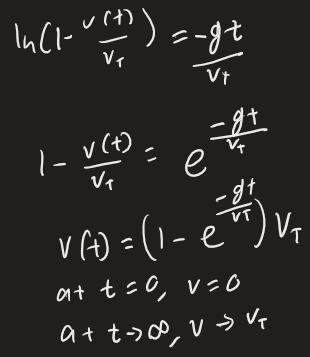 ln(1- v(t)/v_T) = -gt/v_t
1 - v(t)/v_T = e^(-gt/v_T)
v(t) = (1 - e^(-gt/v_T)) V_T
at t=0, v=0
at t→∞, v → v_T